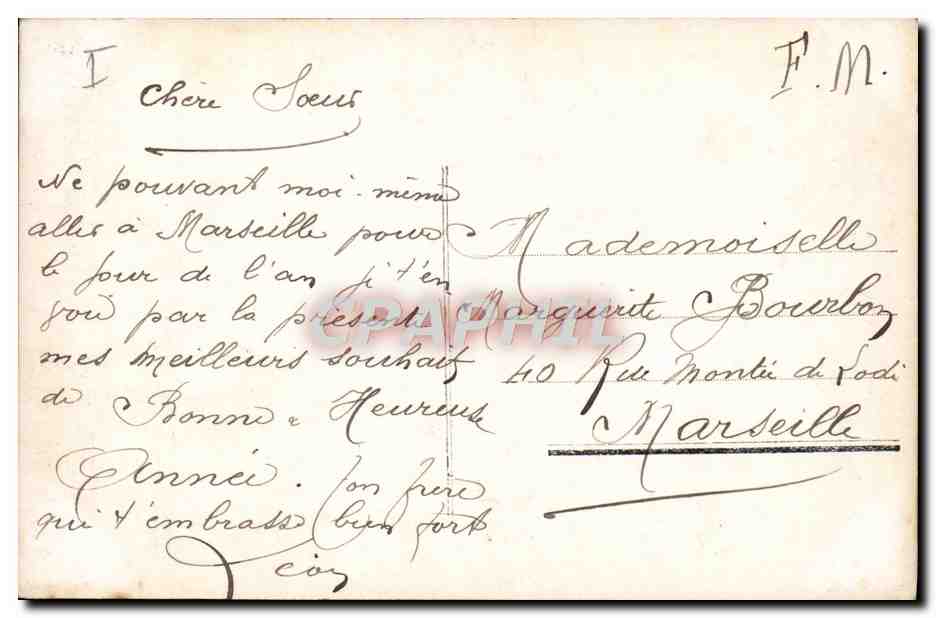 I
F.M.
Chère Sœur
Ne pouvant moi-même
aller à Marseille pour
le jour de l'an j't'en
par la présente
mes meilleurs souhait
de Bonne & Heureuse
Année. ton frère
qui t'embrasse bien fort
Léon
Mademoiselle
Marguerite Bourbon
40 Rue Montée de Lodi
Marseille
CPAPHIL